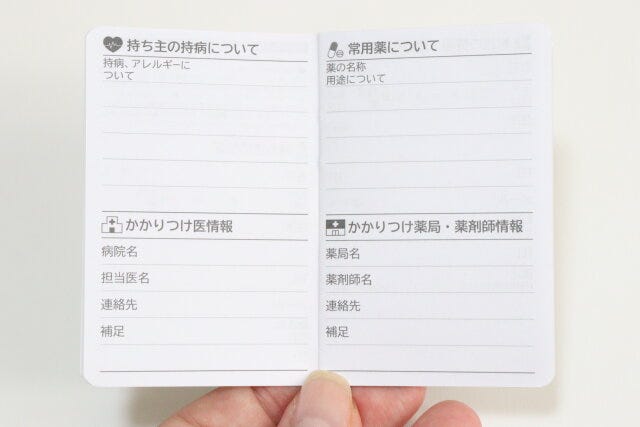 持ち主の持病について
持病、アレルギーに
ついて
かかりつけ医情報
病院名
担当医名
連絡先
補足
常用薬について
薬の名称
用途について
かかりつけ薬局・薬剤師情報
薬局名
薬剤師名
連絡先
補足